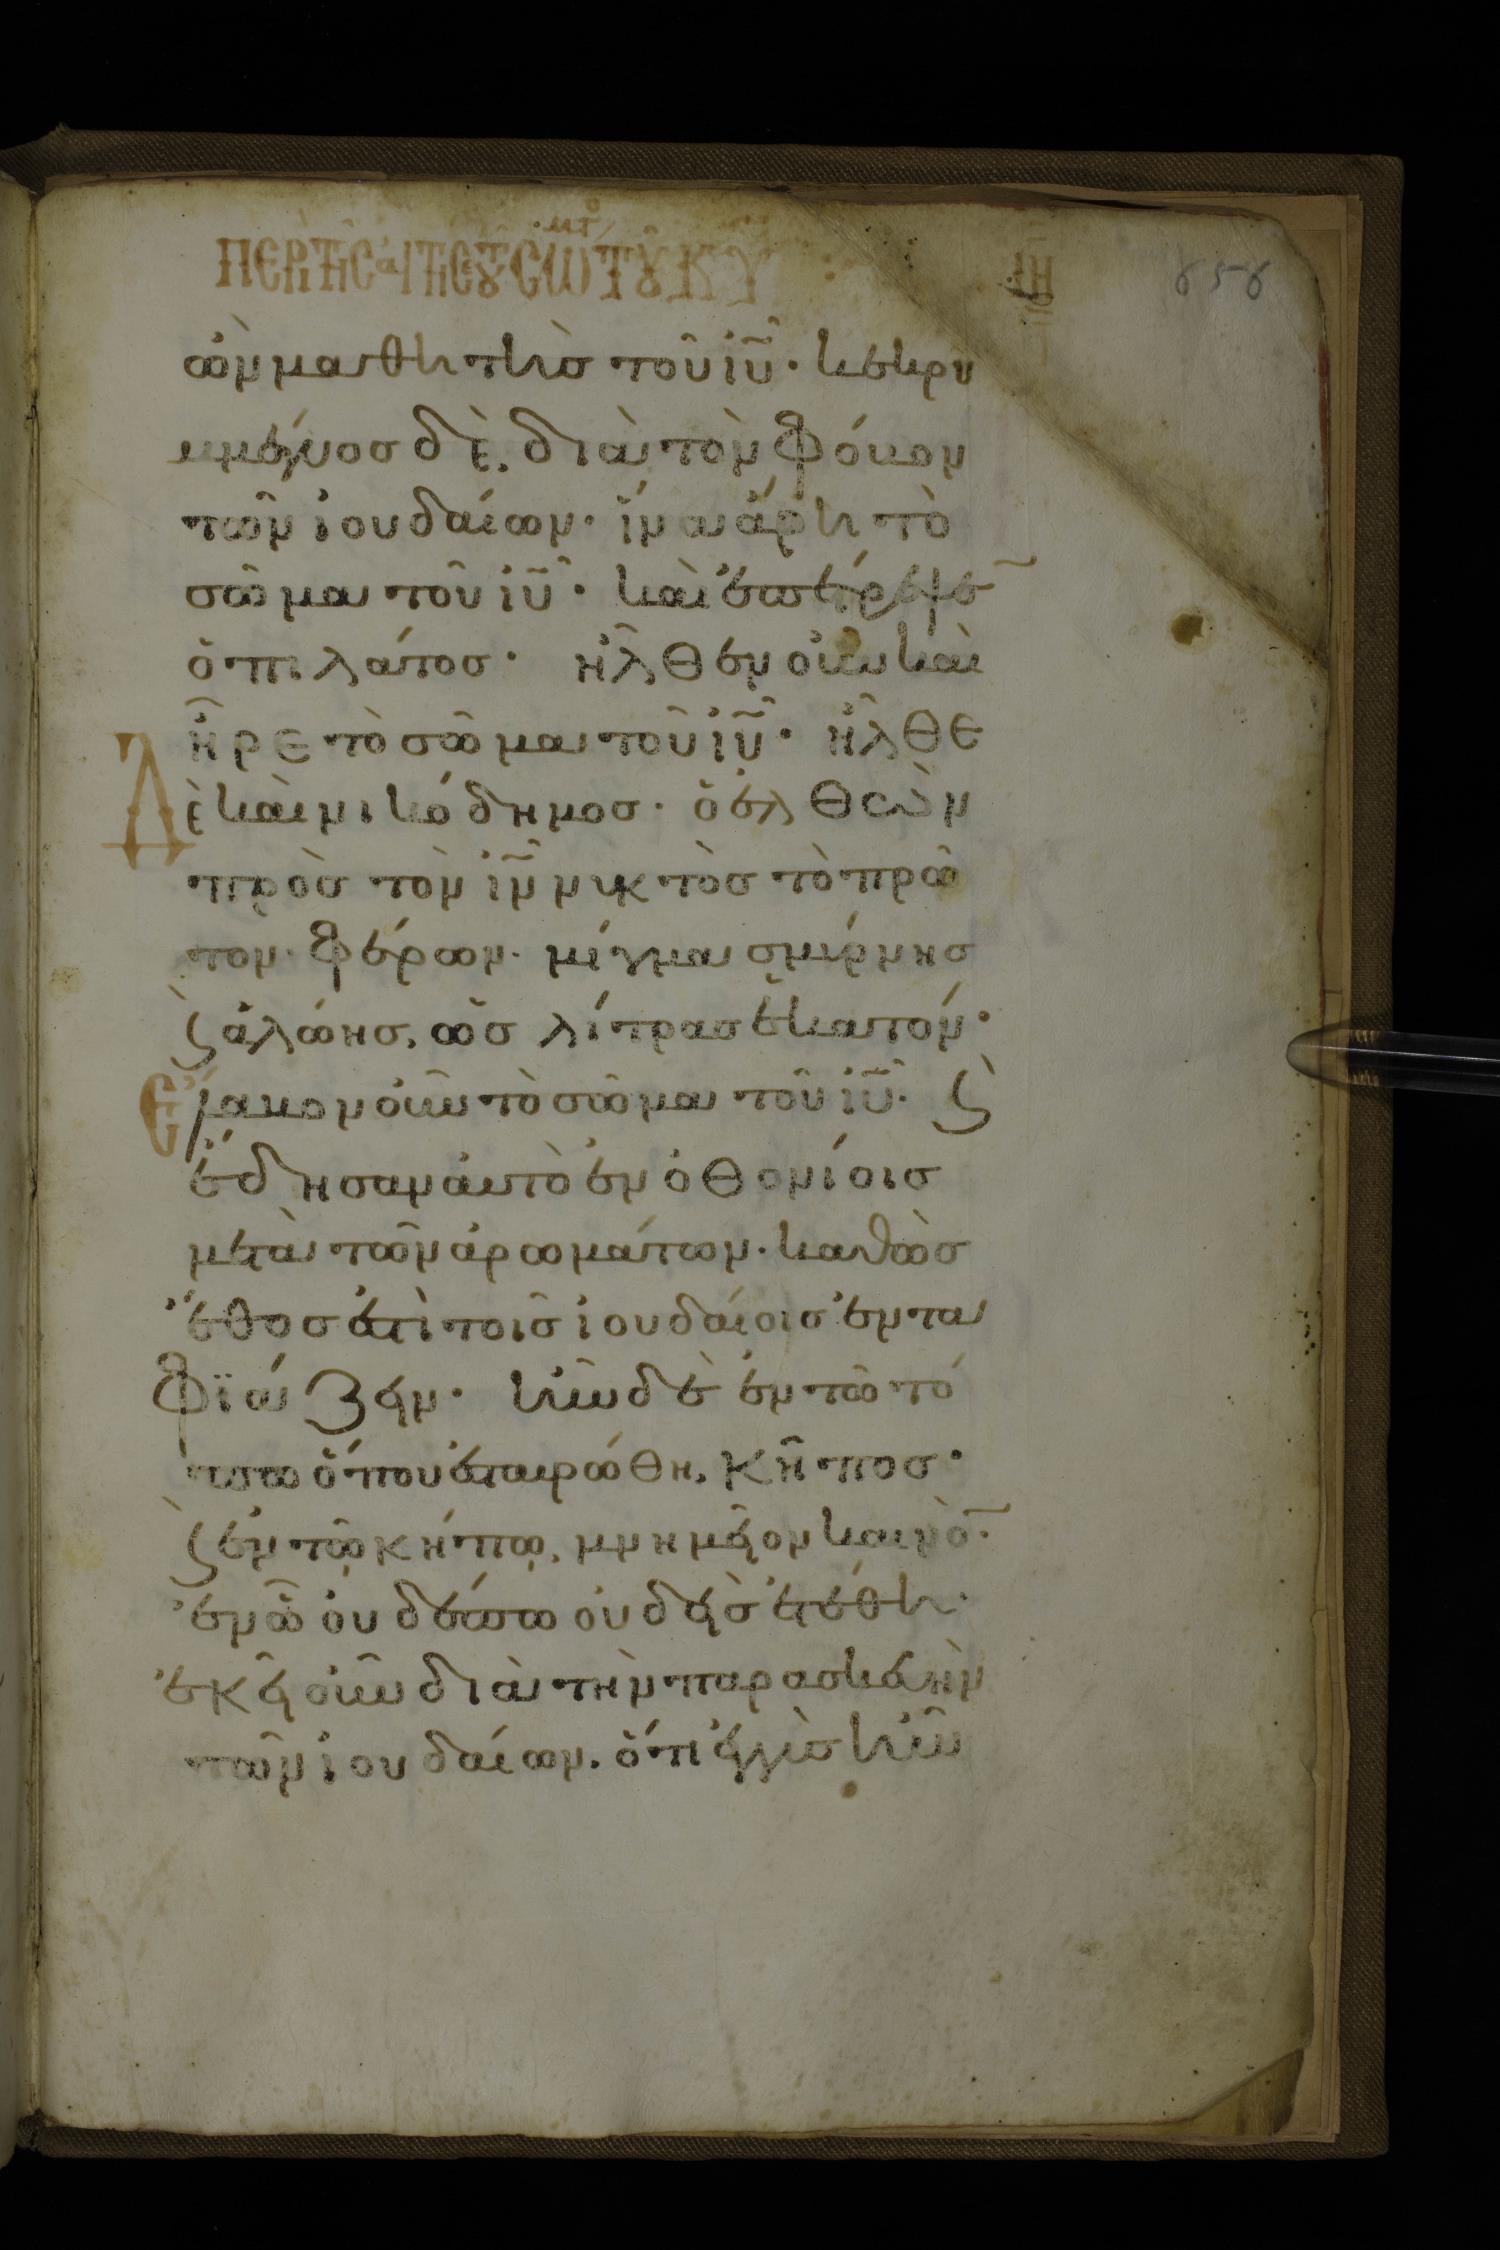 ὢν μαθητὴς τοῦ ἰῦ· κεκρυ
μμένος δὲ, διὰ τὸν φόβον
τῶν ἰουδαίων· ἵνα ἄρη τὸ
σῶμα τοῦ ἰῦ· καὶ ἐπέτρεψε̄
ὁ πιλάτος· ἦλθεν οὖν καὶ
ἦρε τὸ σῶμα τοῦ ἰῦ· ἦλθε
Δὲ καὶ νικόδημος· ὁ ἐλθὼν
πρὸς τὸν ἰν νυκτὸς τὸ πρῶ
τον· φέρων· μίγμα σμύρνης
ϛ ἀλώης, ὡς λίτρας ἑκατόν·
Ἔλαβον οὖν τὸ σῶμα τοῦ ἰῦ· ϛ
ἔδησαν αὐτὸ ἐν ὀθονίοις
μετὰ τῶν ἀρωμάτων· καθὼς
ἔθος ἐστὶ τοῖς ἰουδαίοις ἐντα
φϊάζειν· ἦν δὲ ἐν τῶ τό
πω ὅπου ἐσταυρώθη, κῆπος·
ϛ ἐν τῶ κήπω, μνημεῖον καινὸ̄·
ἐν ῶ οὐδέπω οὐδεὶς ἐτέθη·
ἐκεῖ οὖν διὰ τὴν παρασκευὴν
τῶν ἰουδαίων, ὅτι ἐγγὺς ἦν